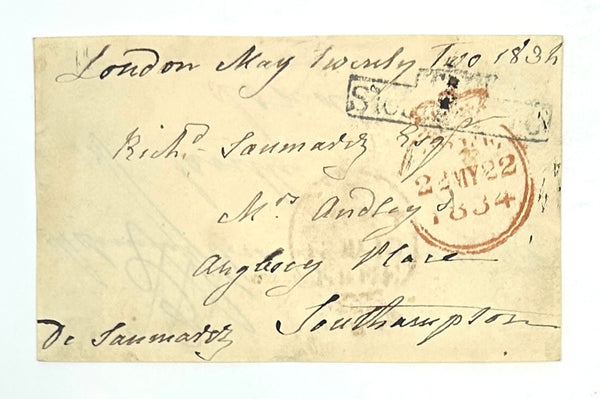 London May twenty two 1834
Richd. Saumarez Esqr
Mrs Audley's
Anglesey Place
Southampton
De Saumarez
22 MY 22
1834